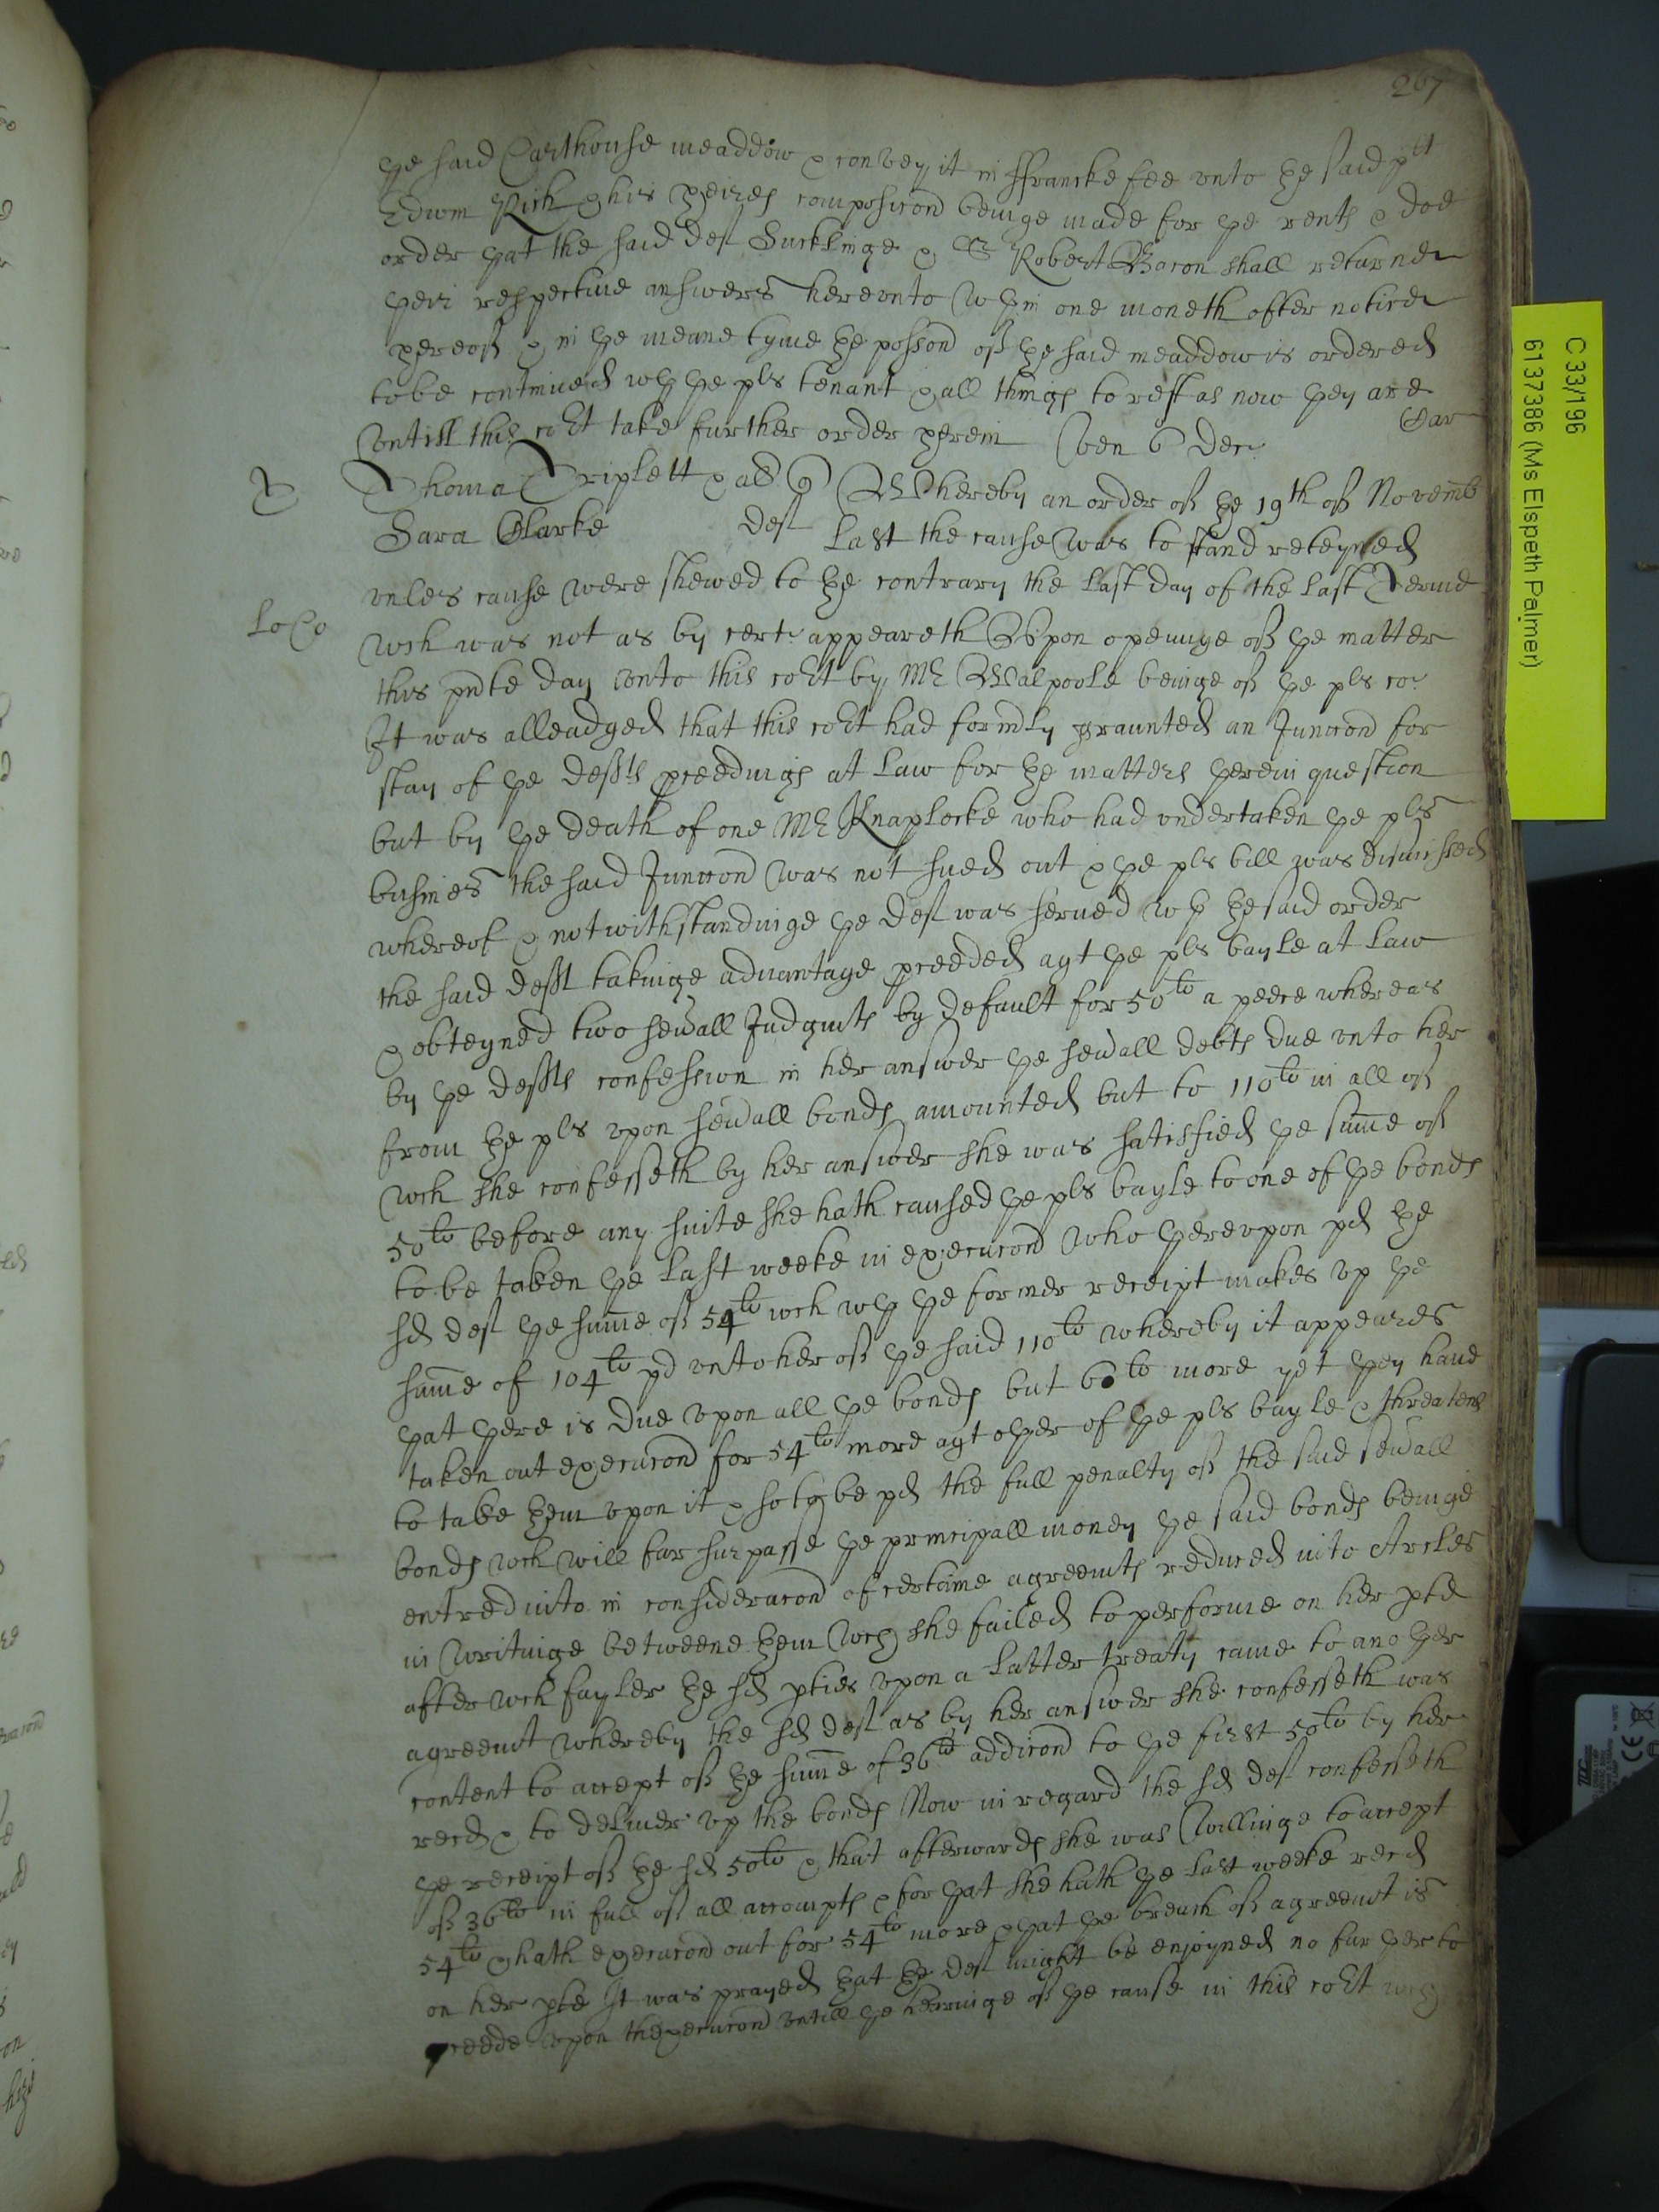 267
ye said Carthouse meaddow & convey it in ffrancke fee vnto ye said plt
Edwin Rich & his heires composicond beinge made for ye rents & doe
order yat the said def Sucklinge & Sr Robert Bacon shall returne
yeir respective answers herevnto wthin one moneth after notice
yereof & in ye meane tyme ye possond of ye said meaddow is ordered
to be continued wth ye pls tenant & all things to rest as now yey are
vntill this cort take further order yerein Ven 6 Dec
Car
T
Thoma Triplett & al Q Whereby an order of ye 19th of Novemb
Sara Clarke def Last the cause was to stand reteyned
vnles cause were shewed to ye contrary the last day of the last Terme
LoCo
wch was not as by cert appeareth Vpon openinge of ye matter
this pnte day vnto this cort by Mr Walpoole beinge of ye pls co
It was alleadged that this cort had formly graunted an Juncond for
stay of ye defts pceedings at Law for ye matters yerein question
but by ye death of one Mr Knaplocke who had vndertaken ye pls
busines the said Juncond was not sued out & ye pls bill was dismissed
whereof & notwithstandinge ye def was served wth ye said order
the said deft takinge advantage pceeded agt ye pls bayle at Law
& obteyned two sevall Judgmts by default for 50li a peece whereas
by ye defts confession in her answer ye sevall debts due vnto her
from ye pls vpon sevall bonds amounted but to 110li in all of
wch she confesseth by her answer she was satisfied ye sume of
50li before any suite she hath caused ye pls bayle to one of ye bonds
to be taken ye Last weeke in execucond who yerevpon pd ye
sd def ye sume of 54li wch wth ye former receipt makes vp ye
sume of 104li pd vnto her of ye said 110li whereby it appeares
yat yere is due vpon all ye bonds but 6li more yet yey have
taken out execucond for 54li more agt oyer of ye pls bayle & threatens
to take yem vpon it & so to be pd the full penalty of the said sevall
bonds wch will far surpasse ye principall money ye said bonds beinge
entred into in consideracond of certaine agreemts reduced into Arcles
in writinge betweene yem wch she failed to performe on her pte
after wch fayler ye sd pties vpon a Latter treaty came to anoyer
agreemt whereby the sd def as by her answer she confesseth was
content to accept of ye sume of 36li addicond to ye first 50li by her
recd & to deliver vp the bonds Now in regard the sd def confesseth
ye receipt of ye sd 50li & that afterwards she was willinge to accept
of 36li in full of all accompts & for yat she hath ye Last weeke recd
54li & hath execucond out for 54li more & yat ye breach of agreemt is
on her pte It was prayed yat ye def might be enjoyned no furyer to
pceede vpon thexecucond vntill ye hearinge of ye cause in this cort wch
C 33/196
6137386 (Ms Elspeth Palmer)